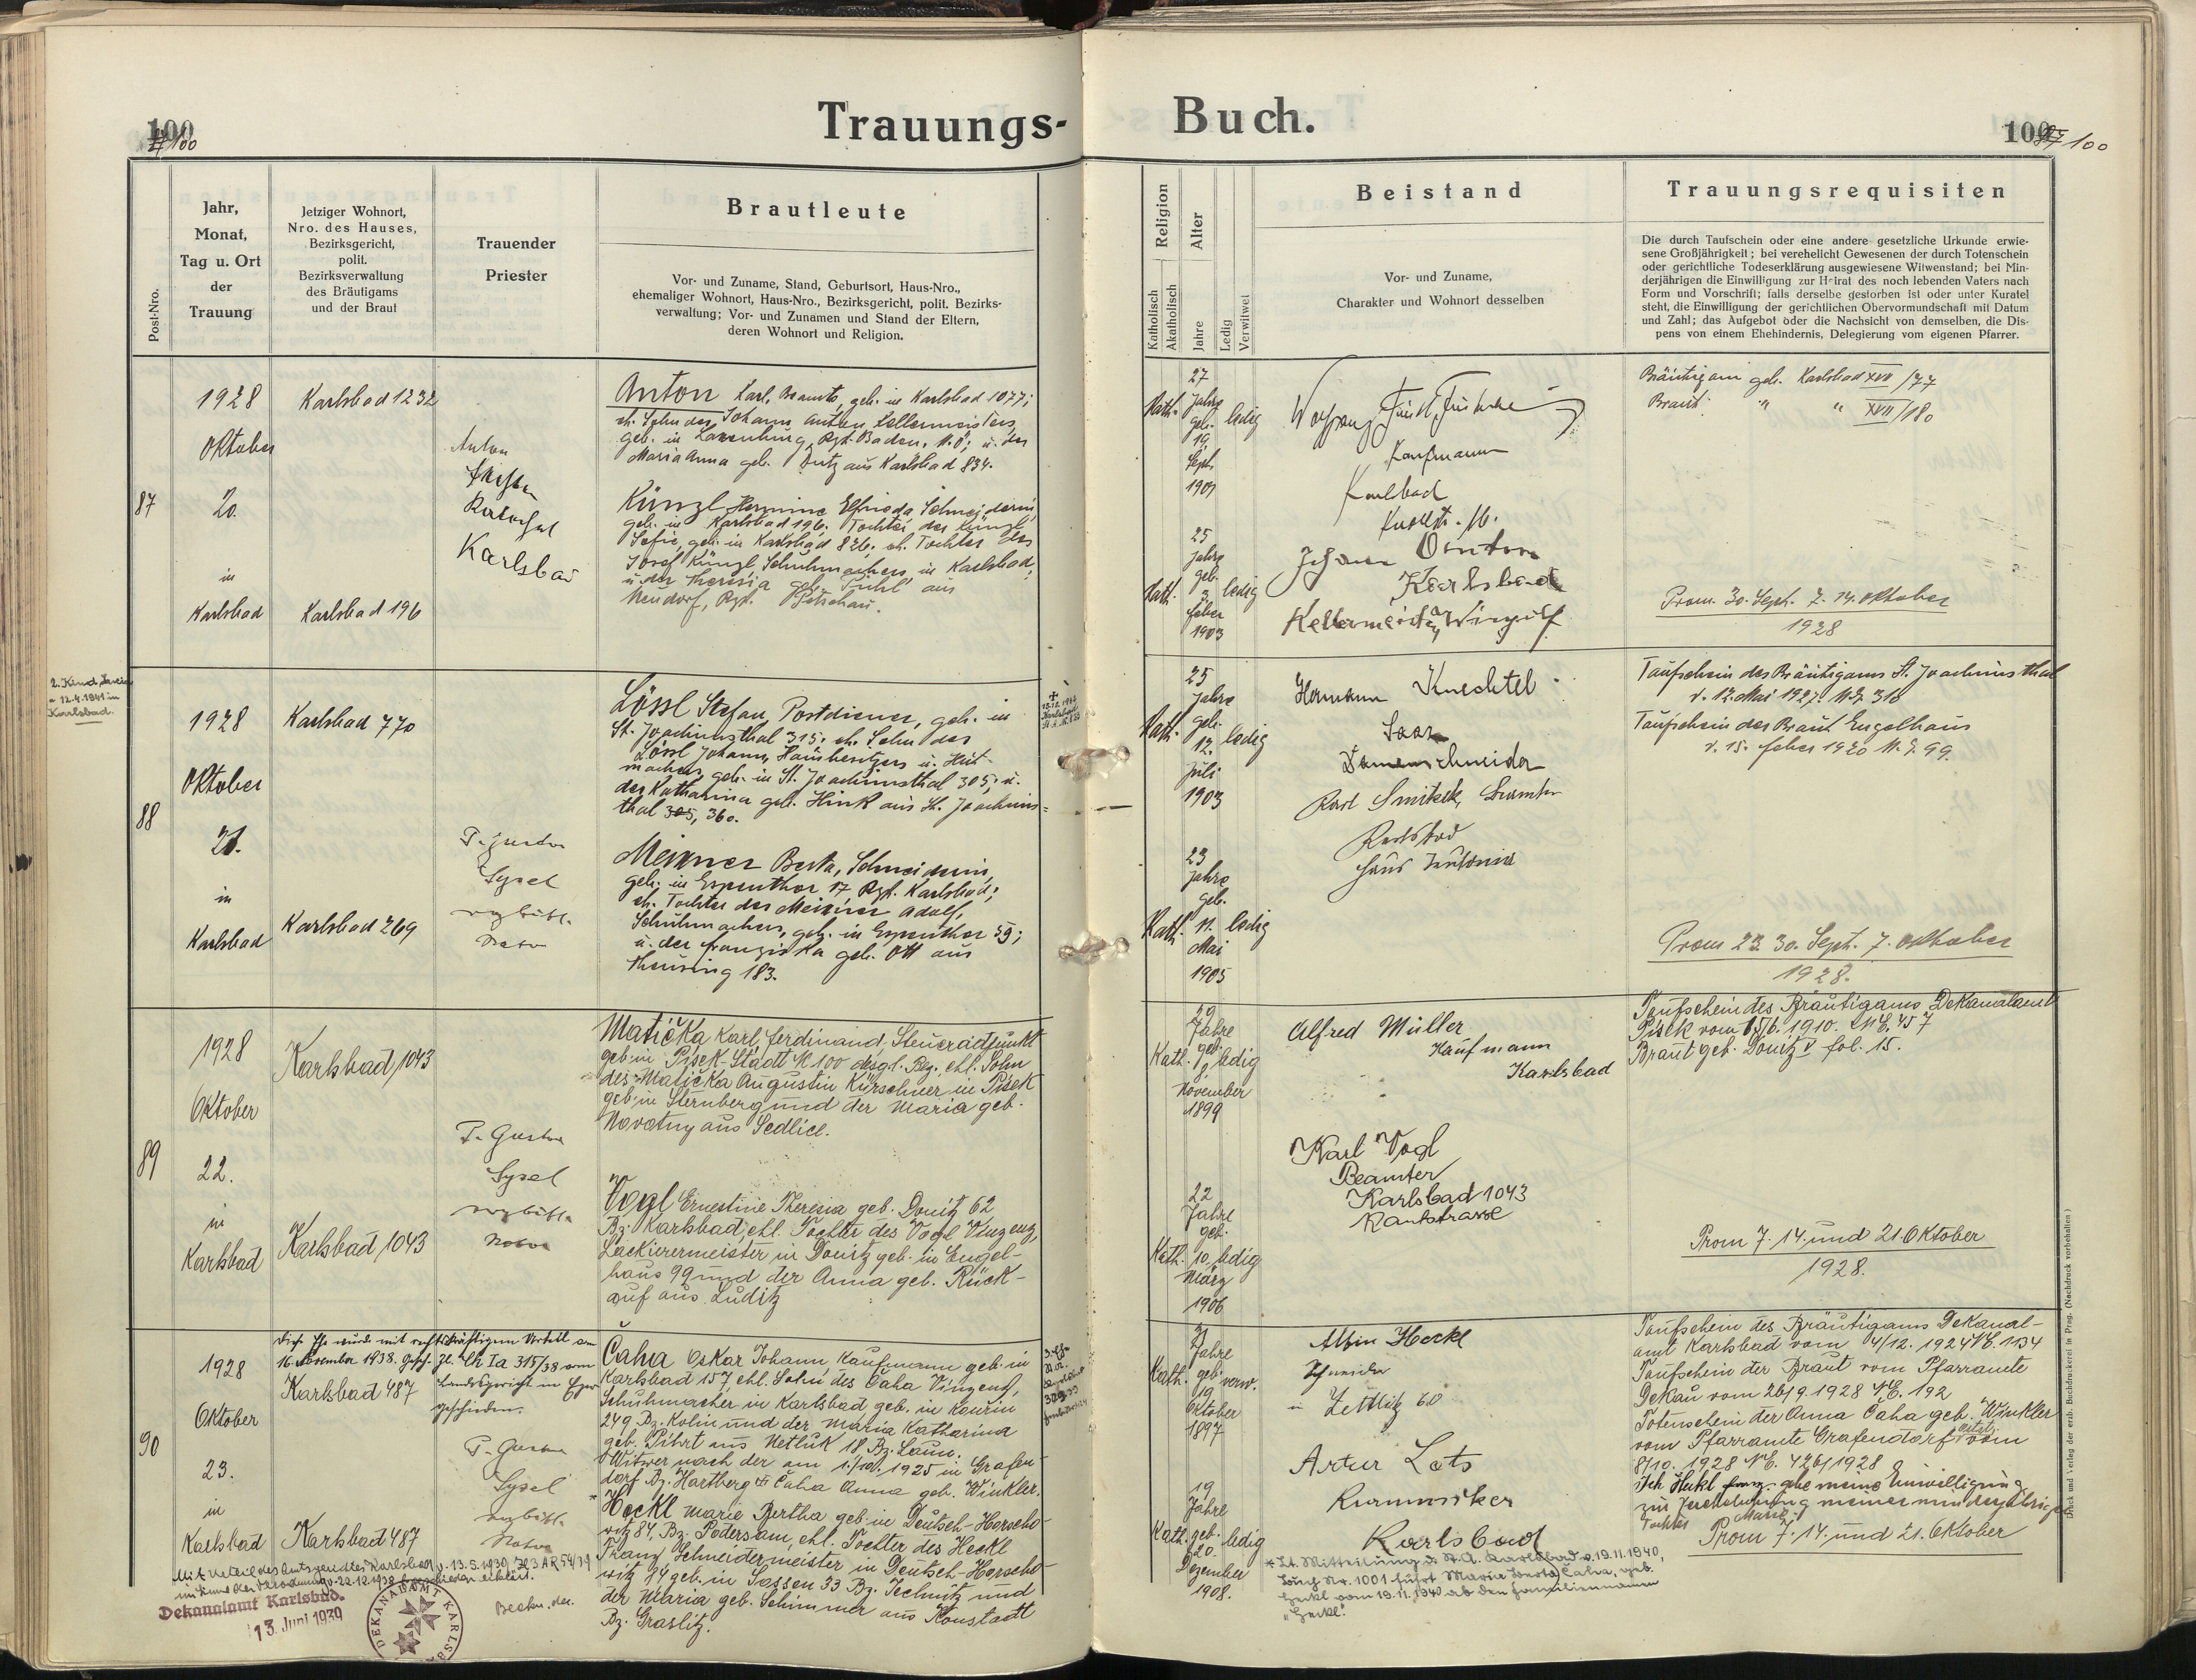 Trauungs-
Buch.
100
100
100
100
Post-Nro.
Jahr,
Monat,
Tag u. Ort
der
Trauung
Jetziger Wohnort,
Nro. des Hauses,
Bezirksgericht,
polit.
Bezirksverwaltung
des Bräutigams
und der Braut
Trauender
Priester
Brautleute
Vor- und Zuname, Stand, Geburtsort, Haus-Nro.,
ehemaliger Wohnort, Haus-Nro., Bezirksgericht, polit. Bezirks-
verwaltung; Vor- und Zunamen und Stand der Eltern,
deren Wohnort und Religion.
Religion
Katholisch
Akatholisch
Alter
Jahre
Ledig
Verwitwet
Beistand
Vor- und Zuname,
Charakter und Wohnort desselben
Trauungsrequisiten
Die durch Taufschein oder eine andere gesetzliche Urkunde erwie-
sene Großjährigkeit; bei verehelicht Gewesenen der durch Totenschein
oder gerichtliche Todeserklärung ausgewiesene Witwenstand; bei Min-
derjährigen die Einwilligung zur Heirat des noch lebenden Vaters nach
Form und Vorschrift; falls derselbe gestorben ist oder unter Kuratel
steht, die Einwilligung der gerichtlichen Obervormundschaft mit Datum
und Zahl; das Aufgebot oder die Nachsicht von demselben, die Dis-
pens von einem Ehehindernis, Delegierung vom eigenen Pfarrer.
87
1928
Oktober
20.
in
Karlsbad
Karlsbad 1232
Karlsbad 196
Anton
Karlsbad
Anton Karl, Beamte, geb. in Karlsbad 1077;
eh. Sohn des Johann Anton Kellermeisters,
geb. in Baden, N.Ö; u. der
Maria Anna geb. aus Karlsbad 834.
Künzl Hermine Elfrieda Schneiderin,
geb. in Karlsbad 196. Tochter der Künzl
Sofie, geb. in Karlsbad 826; eh. Tochter des
Josef Künzl, Schuhmachers in Karlsbad,
u. der Theresia geb. aus
Neudorf, Bzt. Petschau.
Kath.
27
Jahre
geb.
19.
Sept.
1901
ledig
Kath.
25
Jahre
geb.
3.
feber
1903
ledig
Kaufmann
Karlsbad
Johann Anton
Karlsbad
Kellermeister
Bräutigam geb. Karlsbad XVII/77
Braut " " XVII/180
Prom. 30. Sept. 7. 14. Oktober
1928
88
2. Kind
12.4.1941 in
Karlsbad.
1928
Oktober
21.
in
Karlsbad
Karlsbad 770
Karlsbad 269
P. Gustav
Sysel
Lössl Stefan, Postdiener, geb. in
St. Joachimsthal 315; eh. Sohn des
Lössl Johann, Hausbesitzers u. Hut-
machers, geb. in St. Joachimsthal 305; u.
der Katharina geb. Hink aus St. Joachims-
thal 305, 360.
Meixner Berta, Schneiderin,
geb. in Espenthor 17 Bzt. Karlsbad;
eh. Tochter des Meixner Adolf,
Schuhmachers, geb. in Espenthor 39;
u. der Franziska geb. Ott aus
Theusing 183.
Kath.
25
Jahre
geb.
12.
Juli
1903
ledig
Kath.
23
Jahre
geb.
11.
Mai
1905
ledig
Hermann Knechtel
Saaz
Damenschneider
Karl Smitek, Beamter
Karlsbad
Haus
Taufschein des Bräutigams St. Joachimsthal
v. 12. Mai 1927. N.E. 316
Taufschein der Braut Engelhaus
v. 15. feber 1920 N.E. 99.
Prom 23. 30. Sept. 7. Oktober
1928.
89
1928
Oktober
22.
in
Karlsbad
Karlsbad, 1043
Karlsbad, 1043
P. Gustav
Sysel
Matička Karl, Ferdinand, Steueradjunkt
geb. in Pisek Stadt N 100 desgl. Bez., ehl. Sohn
des Matička Augustin Kürschner in Pisek
geb. in Sternberg und der Maria geb.
Novotny aus Sedlice.
Vogl Ernestine Theresia geb. Donitz 62
Bz. Karlsbad, ehl. Tochter des Vogl Vinzenz,
Lackierermeister in Donitz geb. in Engel-
haus 99 und der Anna geb. Rück-
auf aus Luditz
Kath.
29
Jahre
geb.
November
1899
ledig
Kath.
22
Jahre
geb.
10.
März
1906
ledig
Alfred Müller
Kaufmann
Karlsbad
Karl Vogl
Beamter
Karlsbad 1043
Kantstrasse
Taufschein des Bräutigams Dekanalamt
Pisek vom 15/6. 1910. N.E. 457
Braut geb. Donitz V fol. 15.
Prom 7. 14. und 21. Oktober
1928.
90
1928
Oktober
23.
in
Karlsbad
Diese Ehe wurde mit rechtskräftigem Urteil am
16. November 1938. Gesch. Zl. Ck Ia 315/38 vom
Landesgericht in Eger
geschieden.
Karlsbad 487
Karlsbad 487
P. Gustav
Sysel
Čaha Oskar Johann Kaufmann geb. in
Karlsbad 157, ehl. Sohn des Čaha Vinzenz,
Schuhmacher in Karlsbad geb. in Kaurim
249 Bz. Kolin und der Maria Katharina
geb. Pibrt aus Netluk 18, Bz. Laun.
Witwer nach der am 1./10. 1925 in Grafen-
dorf Bz. Hartberg Čaha Anna geb. Winkler.
Heckl Marie Bertha geb. in Deutsch-Horscho-
witz 84, Bz. Podersam, ehl. Tochter des Heckl
Franz, Schneidermeister in Deutsch-Horscho-
witz 14 geb. in Sossen 33 Bz. Jechnitz und
der Maria geb. Schimmer aus Konstadt
Bz. Graslitz.
Kath.
31
Jahre
geb.
19.
Oktober
1897
verw.
Kath.
19
Jahre
geb.
20.
Dezember
1908.
ledig
Albin Heckl
Schneider
in Zettlitz 60
Artur Lots
Karlsbad
Taufschein des Bräutigams Dekanal-
amt Karlsbad vom 4/12. 1924 N.E. 1134
Taufschein der Braut vom Pfarramte
Dekau vom 26/9. 1928 N.E. 192
Totenschein der Anna Čaha geb. Winkler
vom Pfarramte Grafendorf vom
8/10. 1928 N.E. 426/1928
Ich Heckl Franz gebe meine Einwilligung
zur Eheschließung meiner minderjährigen
Tochter Marie.
Prom 7. 14. und 21. Oktober
Mit Urteil des Amtsgerichtes Karlsbad v. 13.5.1939
Dekanalamt Karlsbad.
13. Juni 1939
DEKANALAMT KARLSBAD
* Lt. Mitteilung d. St. A. Karlsbad v. 19.11.1940,
Zahl Nr. 1001 führt Maria Berta Čaha, geb.
Heckl vom 19.11.1940 ab den Familiennamen
"Heckl".
Druck und Verlag der erzb. Buchdruckerei in Prag. (Nachdruck vorbehalten)